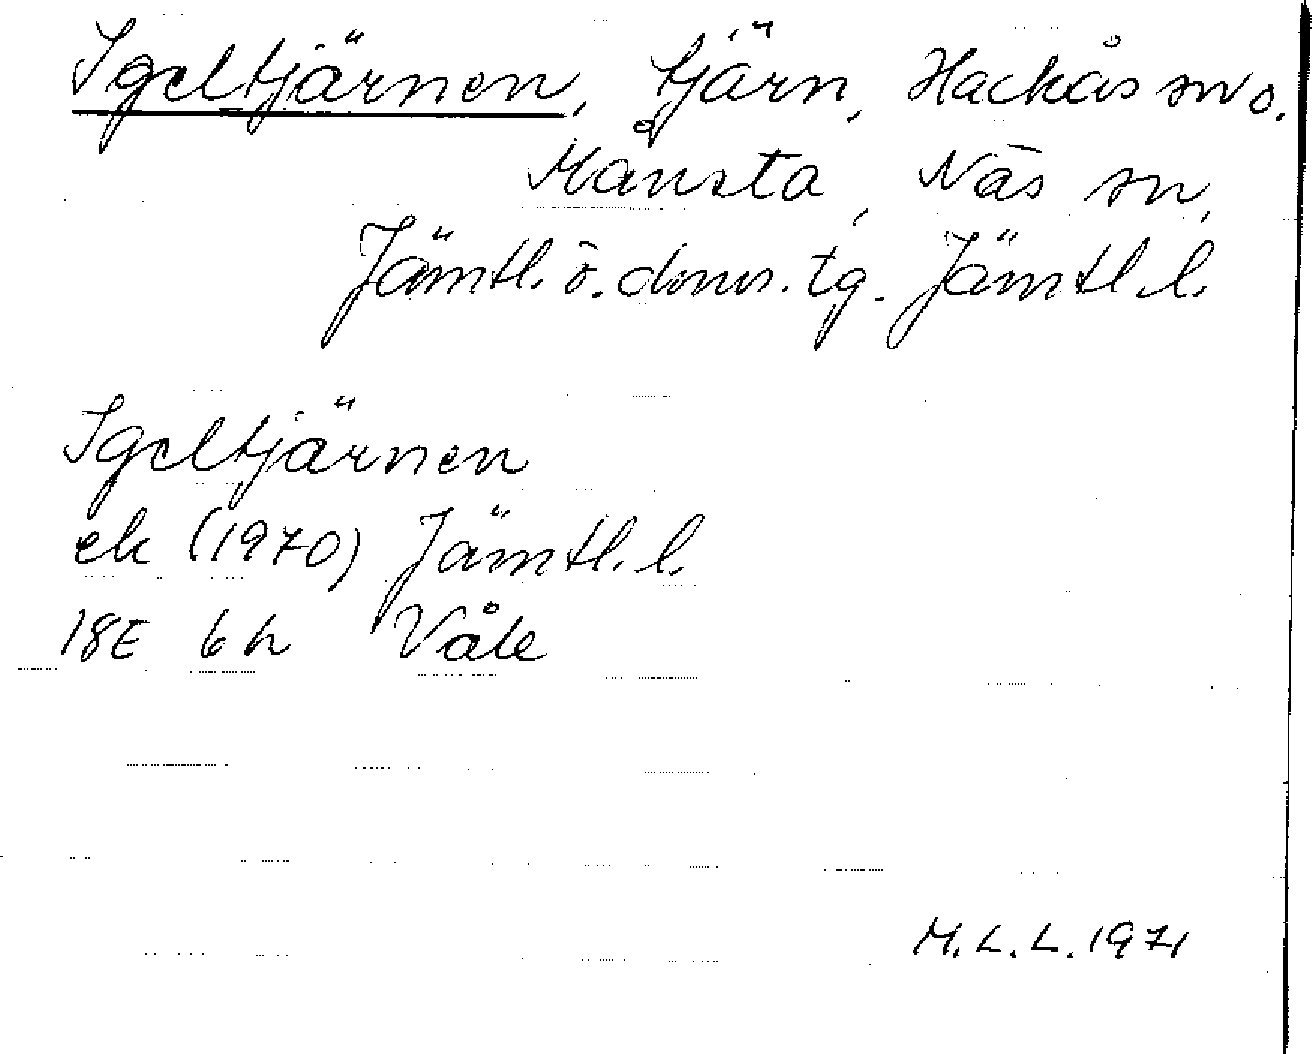 Igeltjärnen, tjärn, Hackås sn o.
Månsta, Näs sn,
Jämtl. ö. doms. tg. Jämtl. l.
Igeltjärnen
ek (1970) Jämtl. l.
18E 6h Våle
M.L.L. 1971